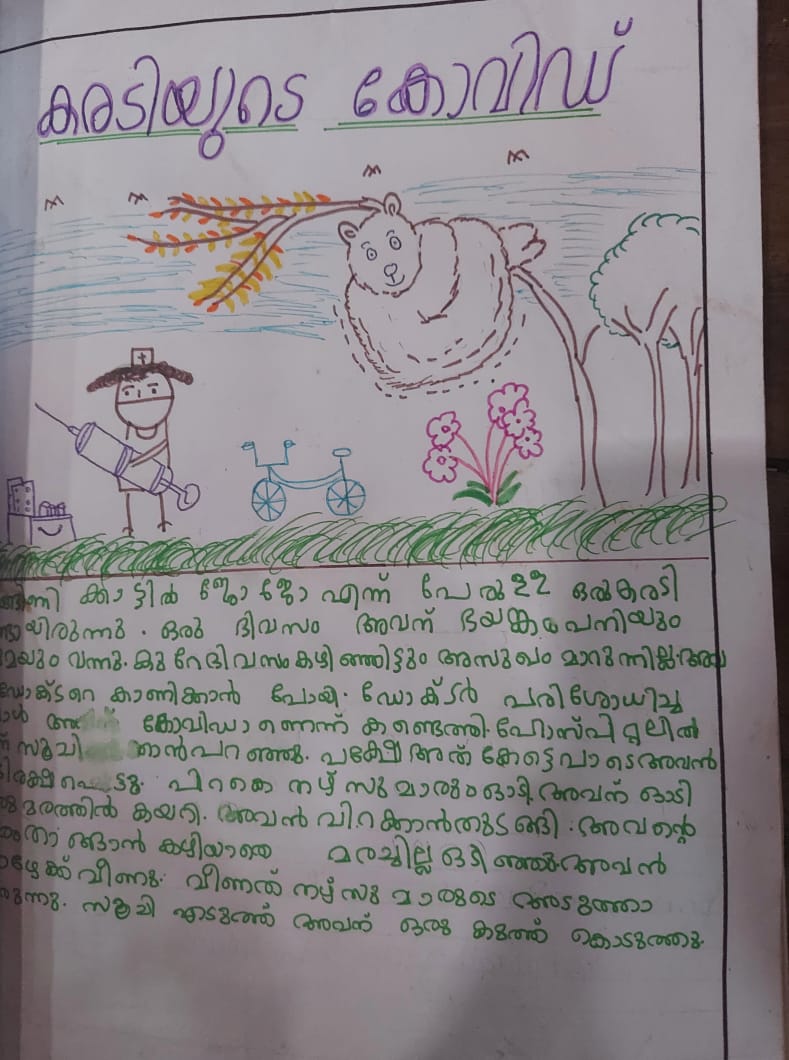 കരടിയുടെ കോവിഡ്
കാട്ടിൽ ജോ ജോ എന്ന് പേരുള്ള ഒരുകരടി
ഒരു ദിവസം അവന് ഭയങ്കര പനിയും
വന്നു. കുറേദിവസംകഴിഞ്ഞിട്ടും അസുഖം മാറുന്നില്ല.
കാണിക്കാൻ പോയി. ഡോക്ടർ പരിശോധിച്ച
കോവിഡാണെന്ന് കണ്ടെത്തി. ഹോസ്പിറ്റലിൽ
പറഞ്ഞു. പക്ഷേ അത് കേട്ടെപാടെ അവൻ
പിറകെ നഴ്സുമാരും ഓടി. അവന് ഓടി
കയറി. അവൻ വിറക്കാൻതുടങ്ങി. അവന്റെ
കഴിയാതെ മരച്ചില്ല ഒടിഞ്ഞു. അവൻ
വീണു. വീണത് നഴ്സുമാരുടെ അടുത്താ
സൂചി എടുത്ത് അവന് ഒരു കുത്ത് കൊടുത്തു.